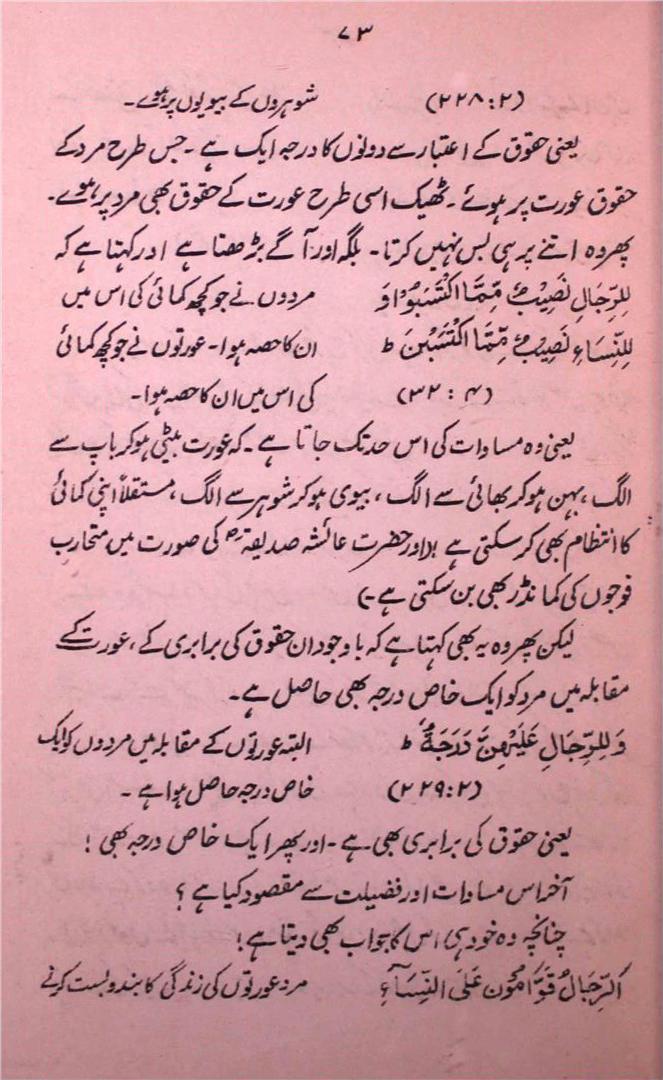 ۷۳
(۲۲۸:۲) شوہروں کے بیویوں پر ہوے۔
یعنی حقوق کے اعتبار سے دونوں کا درجہ ایک ہے ۔ جس طرح مرد کے
حقوق عورت پر ہوئے ۔ ٹھیک اسی طرح عورت کے حقوق بھی مرد پر ہوے۔
پھر وہ اتنے پر ہی بس نہیں کرتا ۔ بلکہ اور آگے بڑھتا ہے اور کہتا ہے کہ
لِلرِّجَالِ نَصِيْبٌ مِّمَّا اكْتَسَبُوْا وَ مردوں نے جو کچھ کمائی کی اس میں
لِلنِّسَاءِ نَصِيْبٌ مِّمَّا اكْتَسَبْنَ ط ان کا حصہ ہوا۔ عورتوں نے جو کچھ کمائی
(۴ : ۳۲) کی اس میں ان کا حصہ ہوا۔
یعنی وہ مساوات کی اس حد تک جاتا ہے ۔ کہ عورت بیٹی ہو کر باپ سے
الگ ، بہن ہو کر بھائی سے الگ ، بیوی ہو کر شوہر سے الگ ، مستقلاً اپنی کمائی
کا انتظام بھی کر سکتی ہے (اور حضرت عائشہ صدیقہؓ کی صورت میں متحارب
فوجوں کی کمانڈر بھی بن سکتی ہے۔)
لیکن پھر وہ یہ بھی کہتا ہے کہ باوجود ان حقوق کی برابری کے ، عورت کے
مقابلہ میں مرد کو ایک خاص درجہ بھی حاصل ہے۔
وَلِلرِّجَالِ عَلَيْهِنَّ دَرَجَةٌ ط البتہ عورتوں کے مقابلہ میں مردوں کو ایک
(۲۲۹:۲) خاص درجہ حاصل ہوا ہے ۔
یعنی حقوق کی برابری بھی ہے ۔ اور پھر ایک خاص درجہ بھی !
آخر اس مساوات اور فضیلت سے مقصود کیا ہے ؟
چنانچہ وہ خود ہی اس کا جواب بھی دیتا ہے !
اَلرِّجَالُ قَوَّامُوْنَ عَلَى النِّسَآءِ مرد عورتوں کی زندگی کا بندوبست کرنے